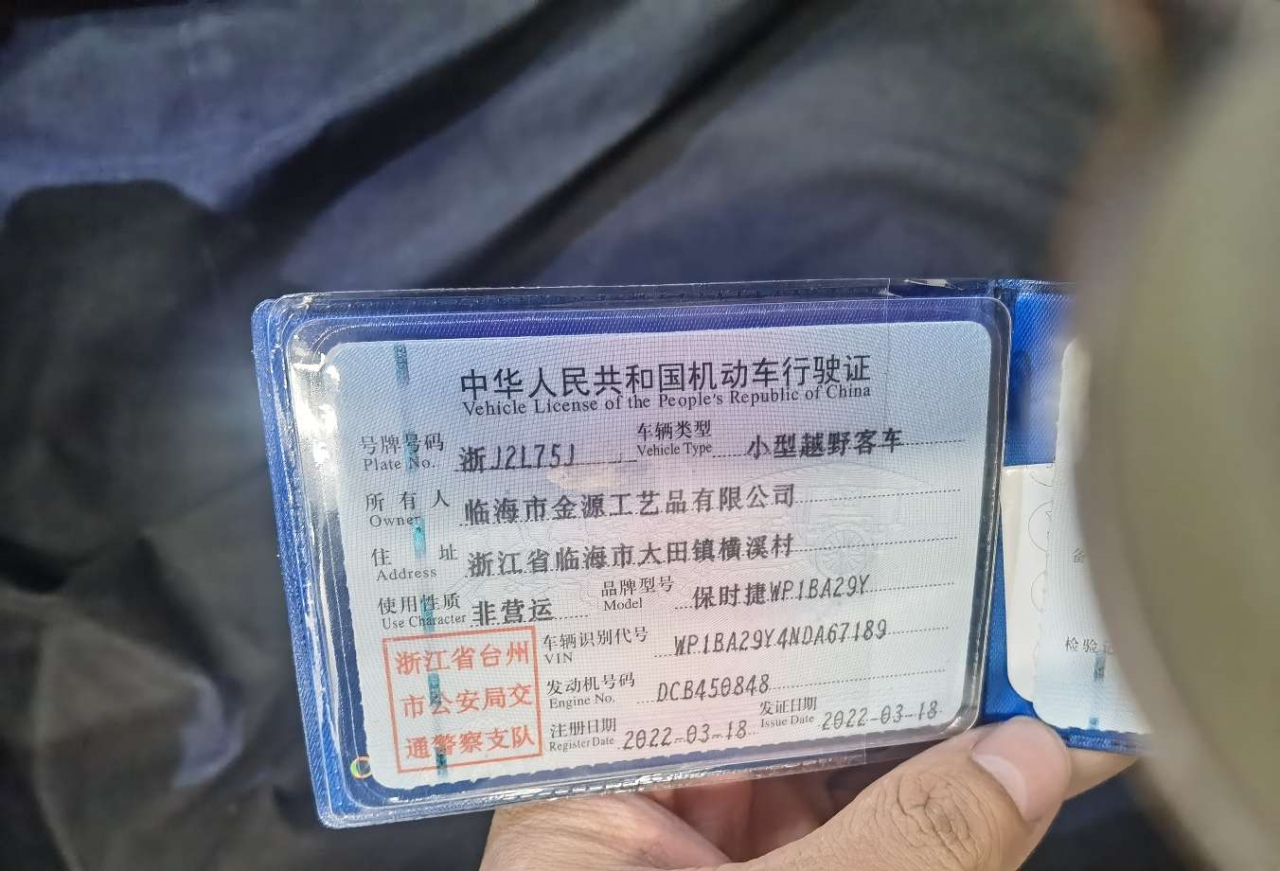 中华人民共和国机动车行驶证
Vehicle License of the People's Republic of China
号牌号码 浙J2L75J 车辆类型 小型越野客车
Plate No. Vehicle Type
所有人 临海市金源工艺品有限公司
Owner
住址 浙江省临海市大田镇横溪村
Address
使用性质 非营运 品牌型号 保时捷WP1BA29Y
Use Character Model
浙江省台州
市公安局交
通警察支队
车辆识别代号 WP1BA29Y4NDA67189
VIN
发动机号码 DCB450848
Engine No.
注册日期 2022-03-18 发证日期 2022-03-18
Register Date Issue Date
检验